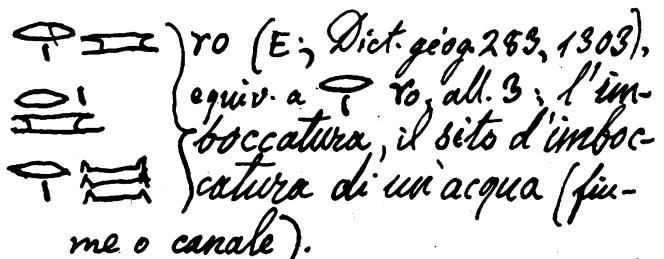 ro (E; Dict. géog. 283, 1303),
equiv. a ro, all. 3; l'im-
boccatura, il sito d'imboc-
catura di un'acqua (fiu-
me o canale).